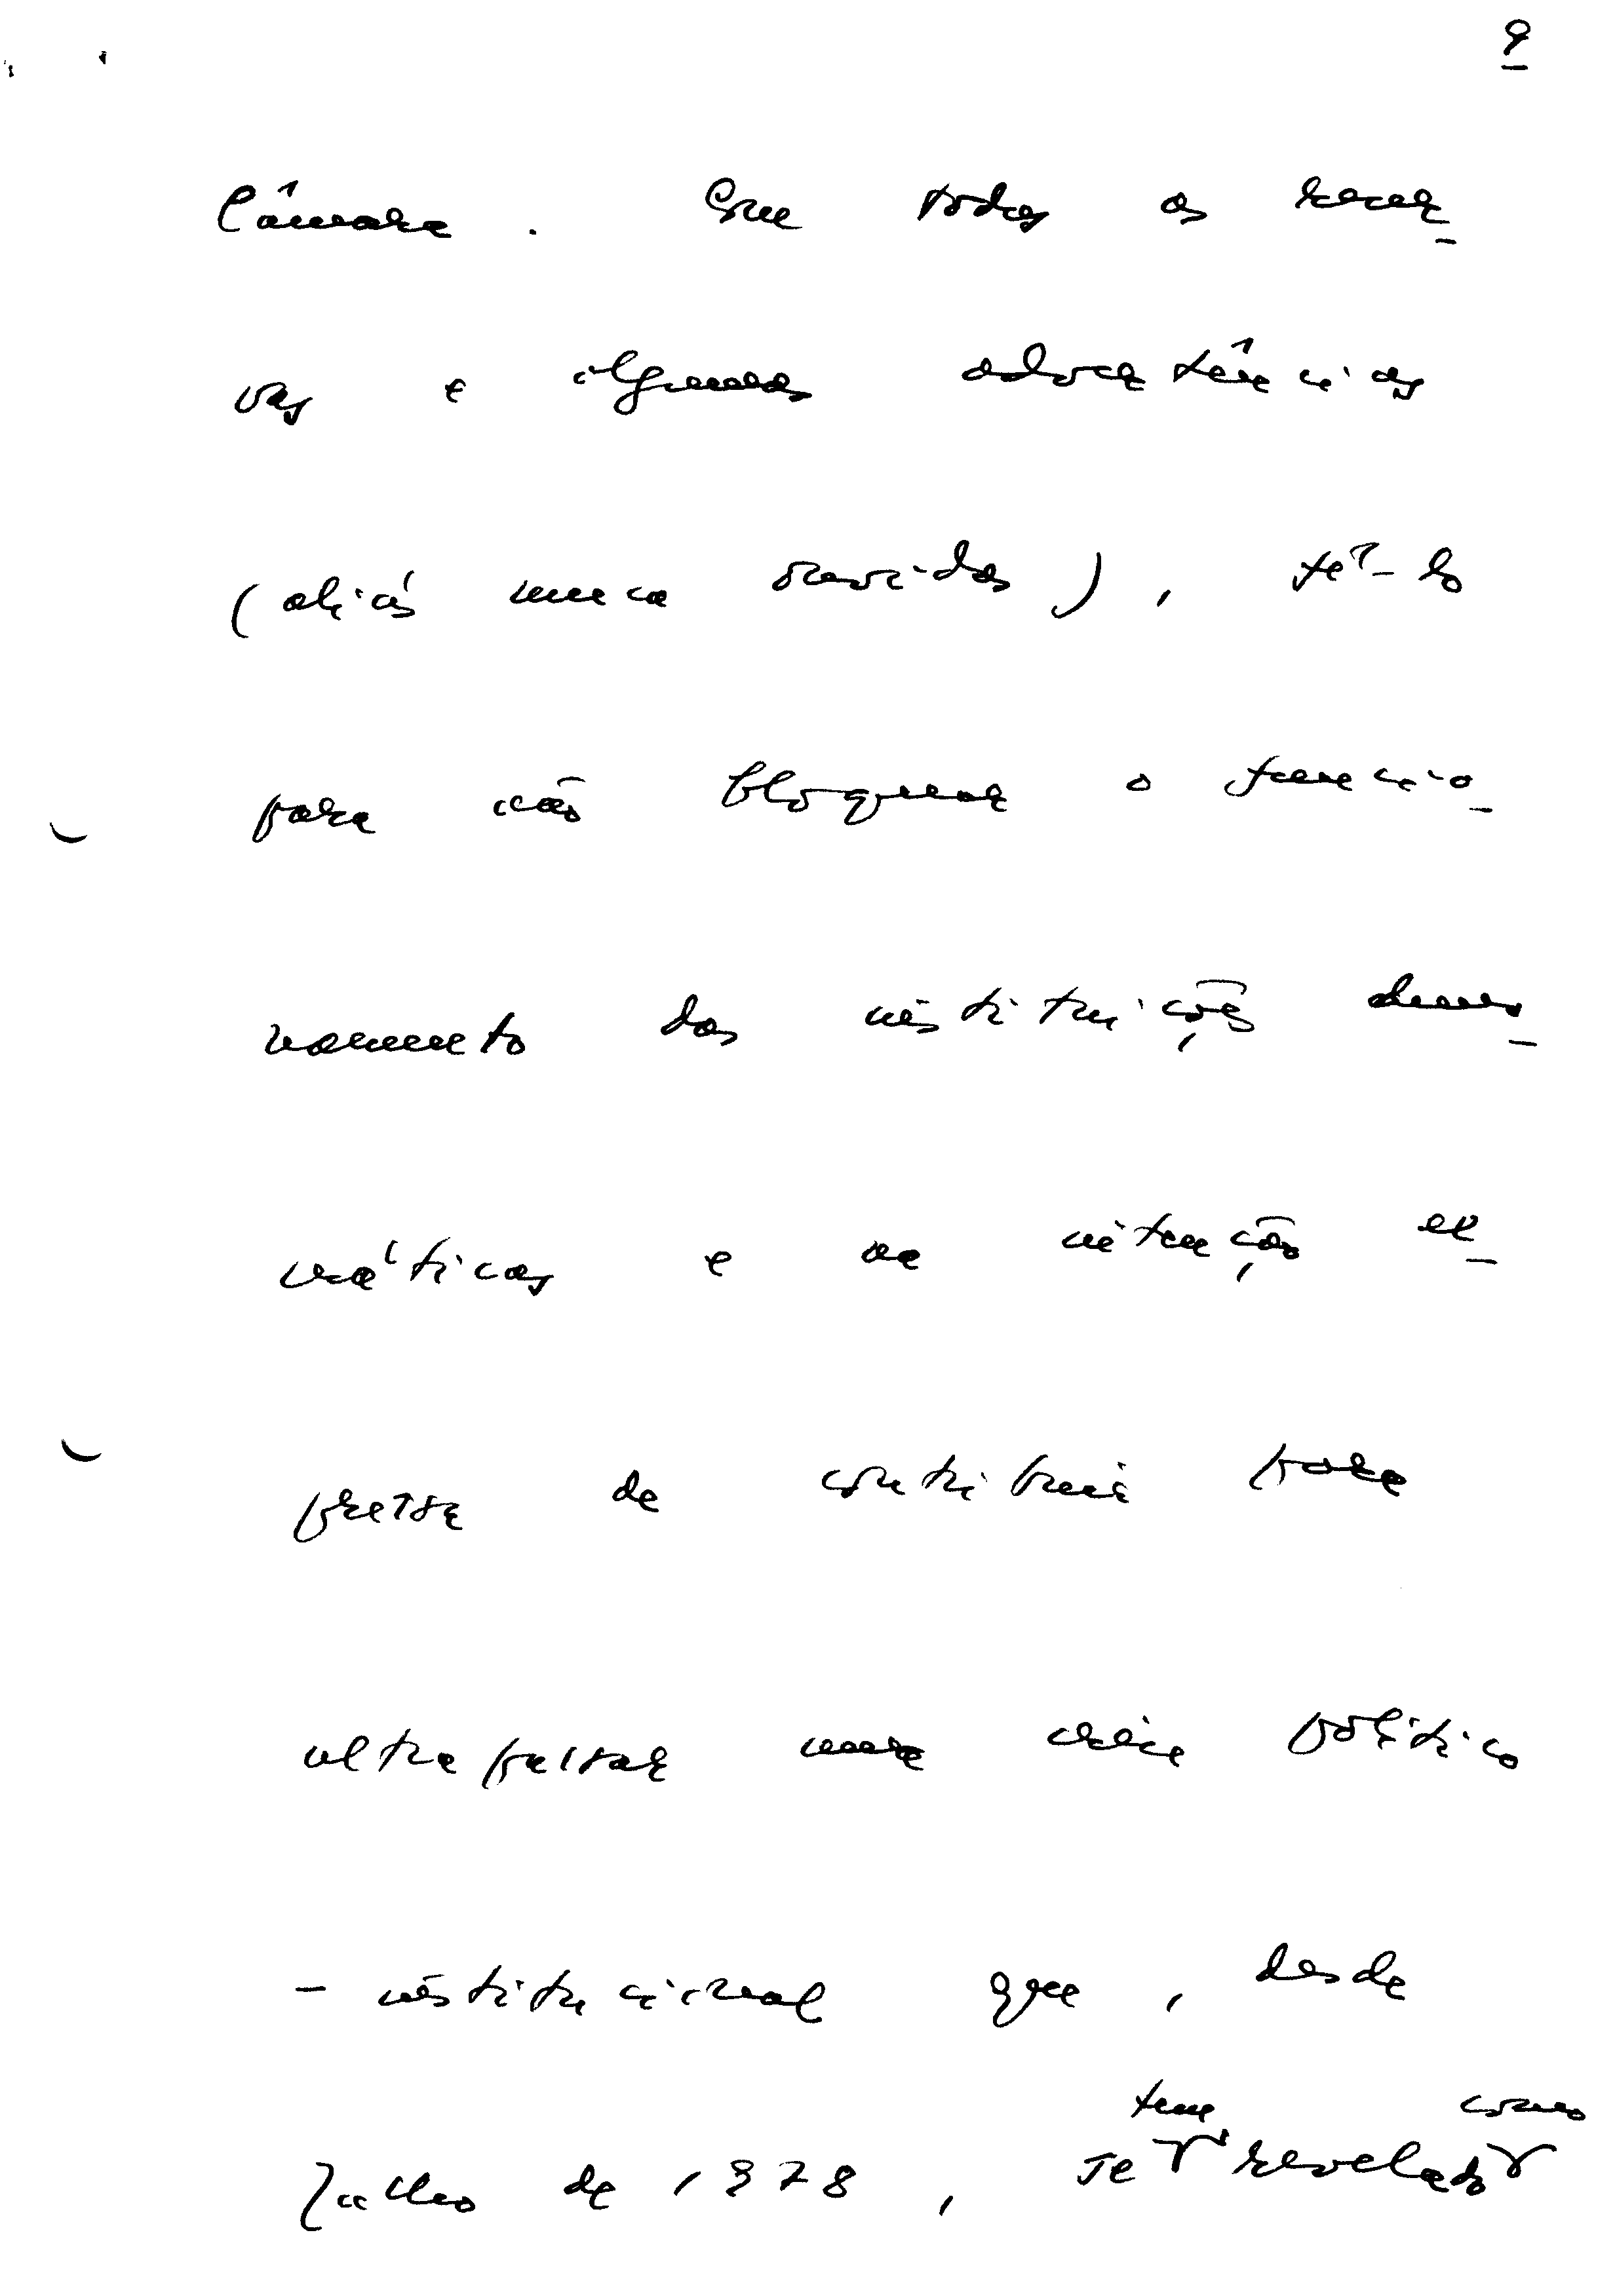 9
Câmara. Com todas as reser-
vas e algumas advertências
(aliás nunca ouvidas), fê-lo
para não bloquear o funcio-
namento das instituições demo-
cráticas e na intenção ex-
pressa de contribuir para
ultrapassar uma crise político
- institucional que, desde
Julho de 1978, se tem revelado como